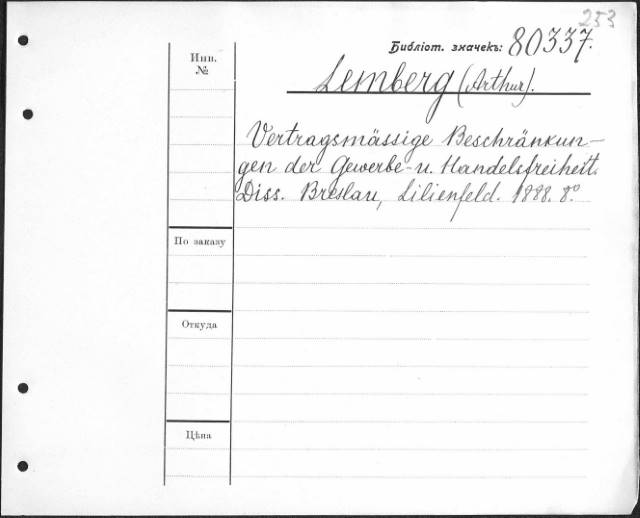 253
Библіот. значекъ: 80337.
Инв.
№
Lemberg (Arthur).
Vertragsmässige Beschränkun-
gen der Gewerbe- u. Handelsfreiheit.
Diss. Breslau, Lilienfeld. 1888. 8º.
По заказу
Откуда
Цѣна